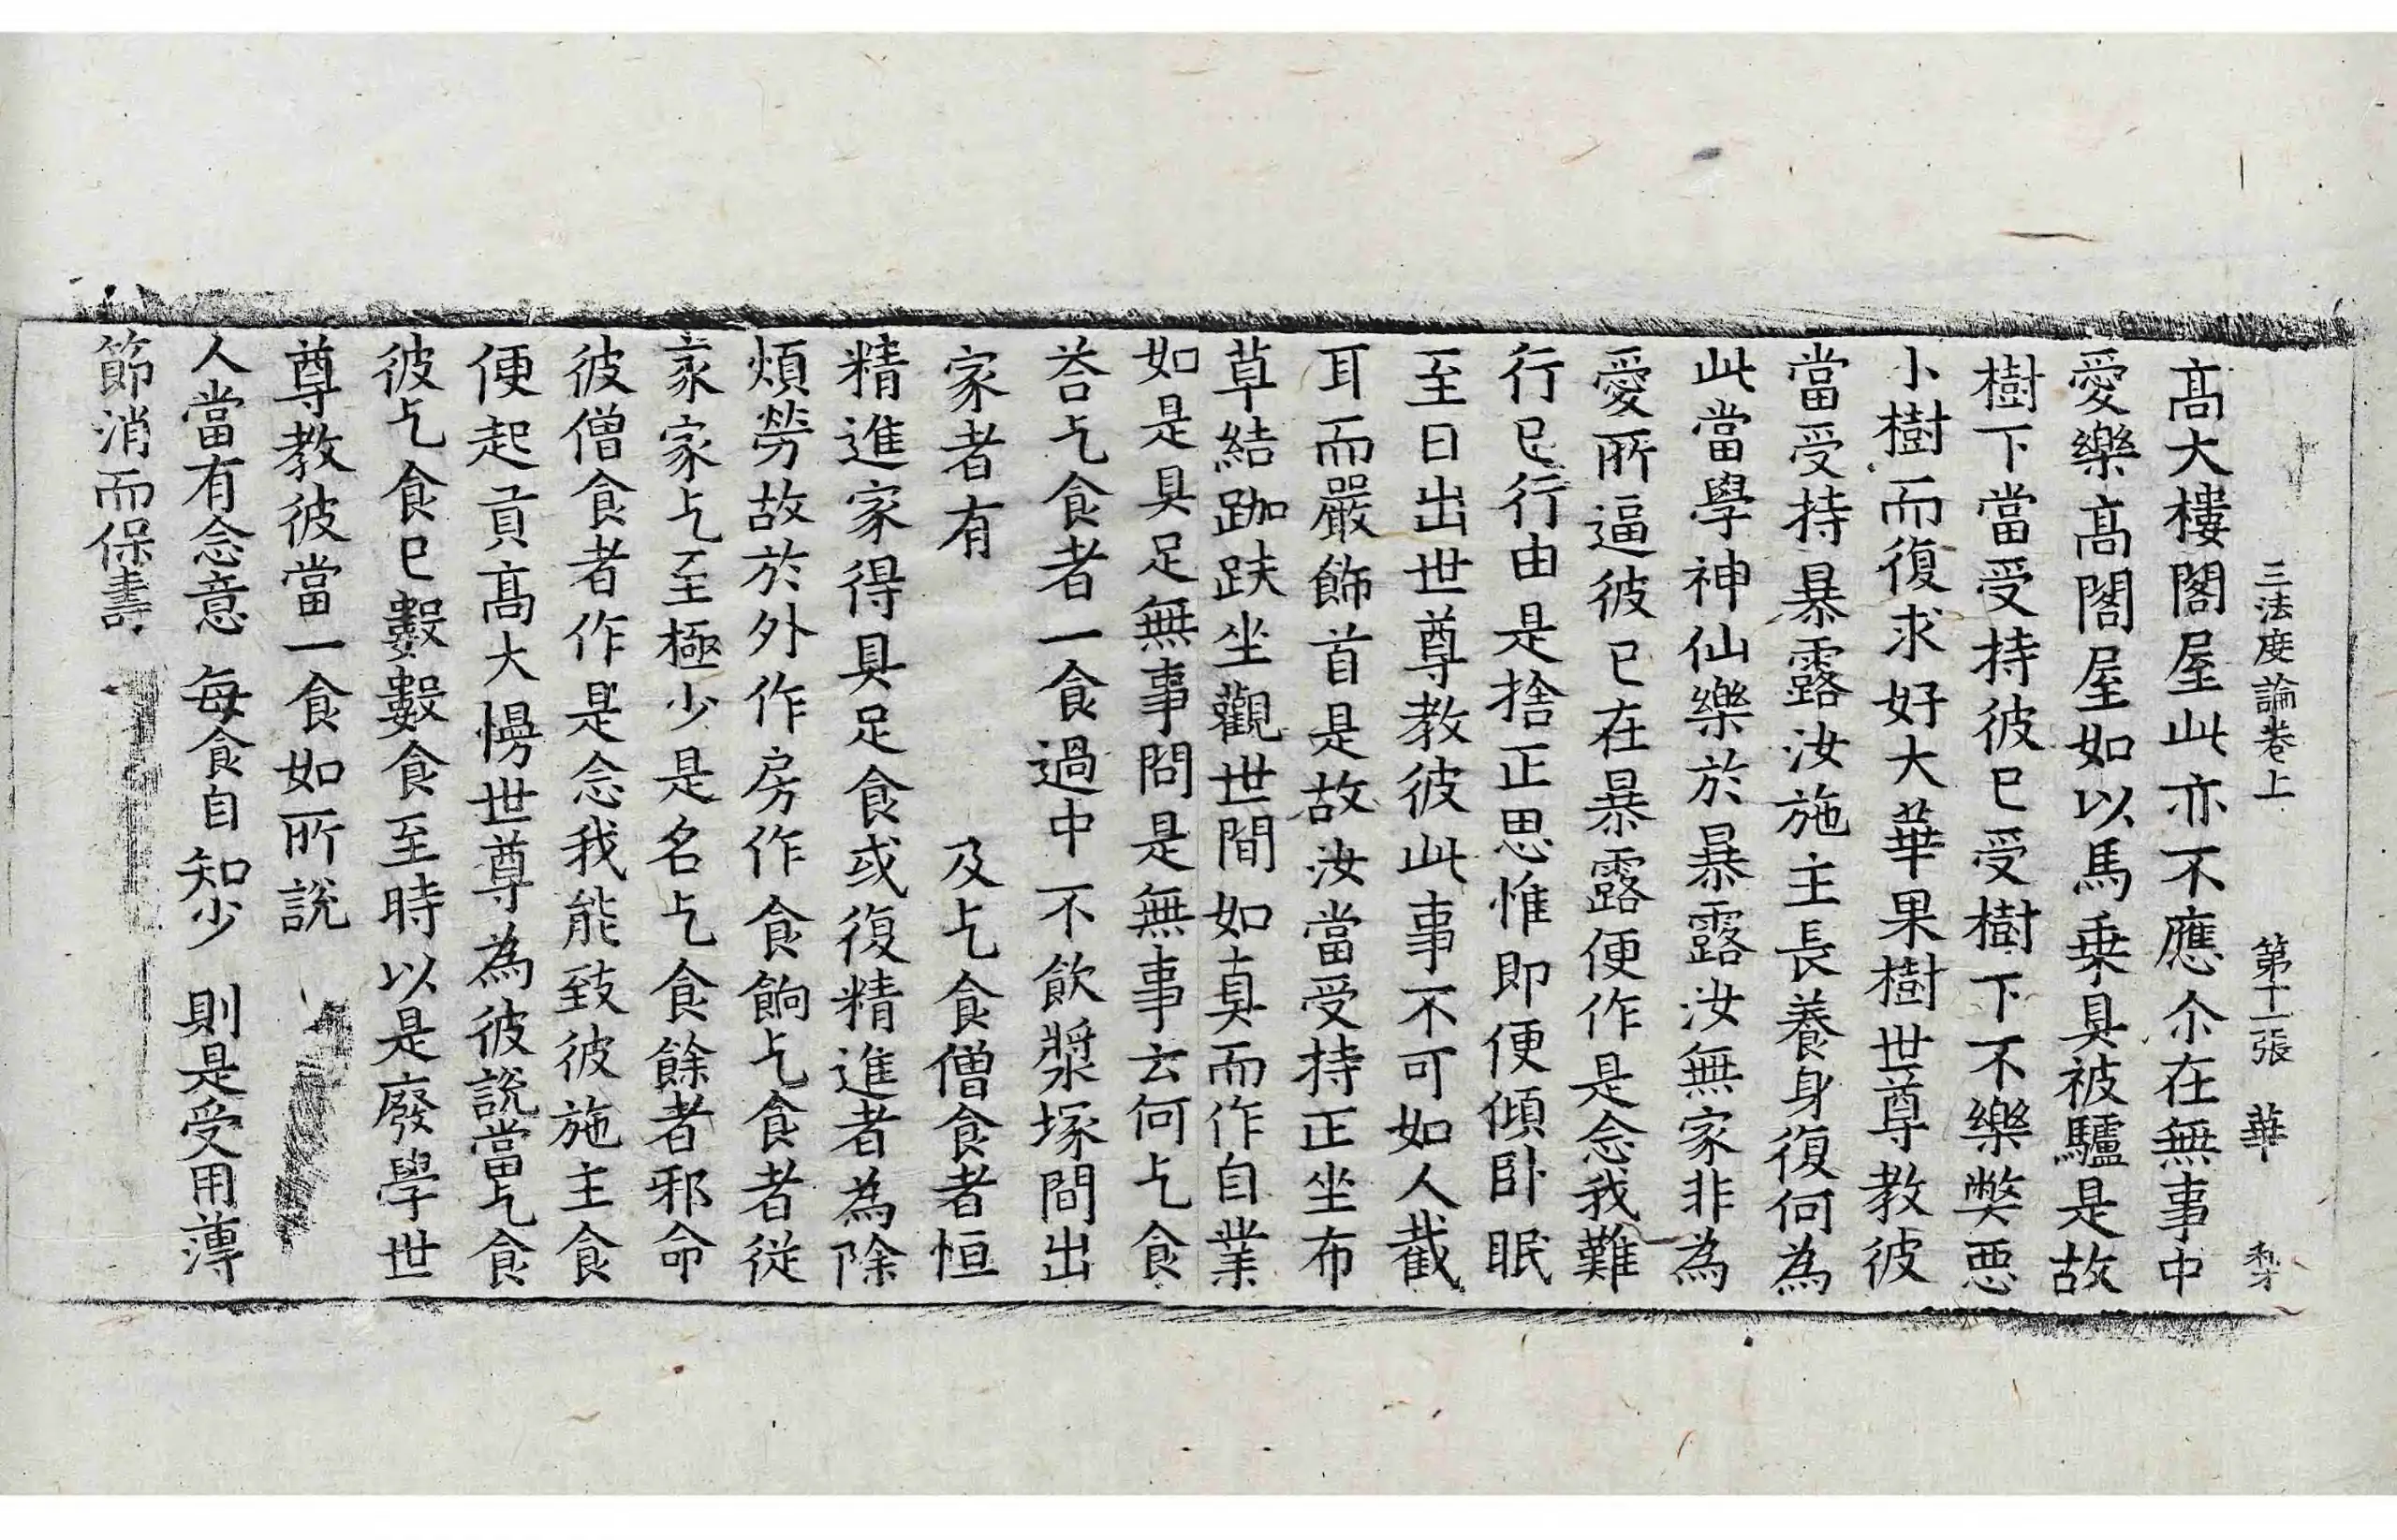 三法度論卷上　第十一張　華
高大樓閣屋此亦不應尒在無事中
愛樂高閣屋如以馬乗具被驢是故
樹下當受持彼巳受樹下不樂弊惡
小樹而復求好大華果樹世尊教彼
當受持暴露汝施主長養身復何為
此當學神仙樂於暴露汝無家非為
愛所逼彼已在暴露便作是念我難
行已行由是捨正思惟即便傾卧眠
至日出世尊教彼此事不可如人截
耳而嚴飾首是故汝當受持正坐布
草結跏趺坐觀世間如真而作自業
如是具足無事問是無事云何乞食
荅乞食者一食過中不飲漿塚間出
家者有　及乞食僧食者恒
精進家得具足食或復精進者為除
煩勞故於外作房作食餉乞食者従
家家乞至極少是名乞食餘者邪命
彼僧食者作是念我能致彼施主食
便起貢高大慢世尊為彼說當乞食
彼乞食巳數數食至時以是廢學世
尊教彼當一食如所說
人當有念意　每食自知少　則是受用薄
節消而保壽